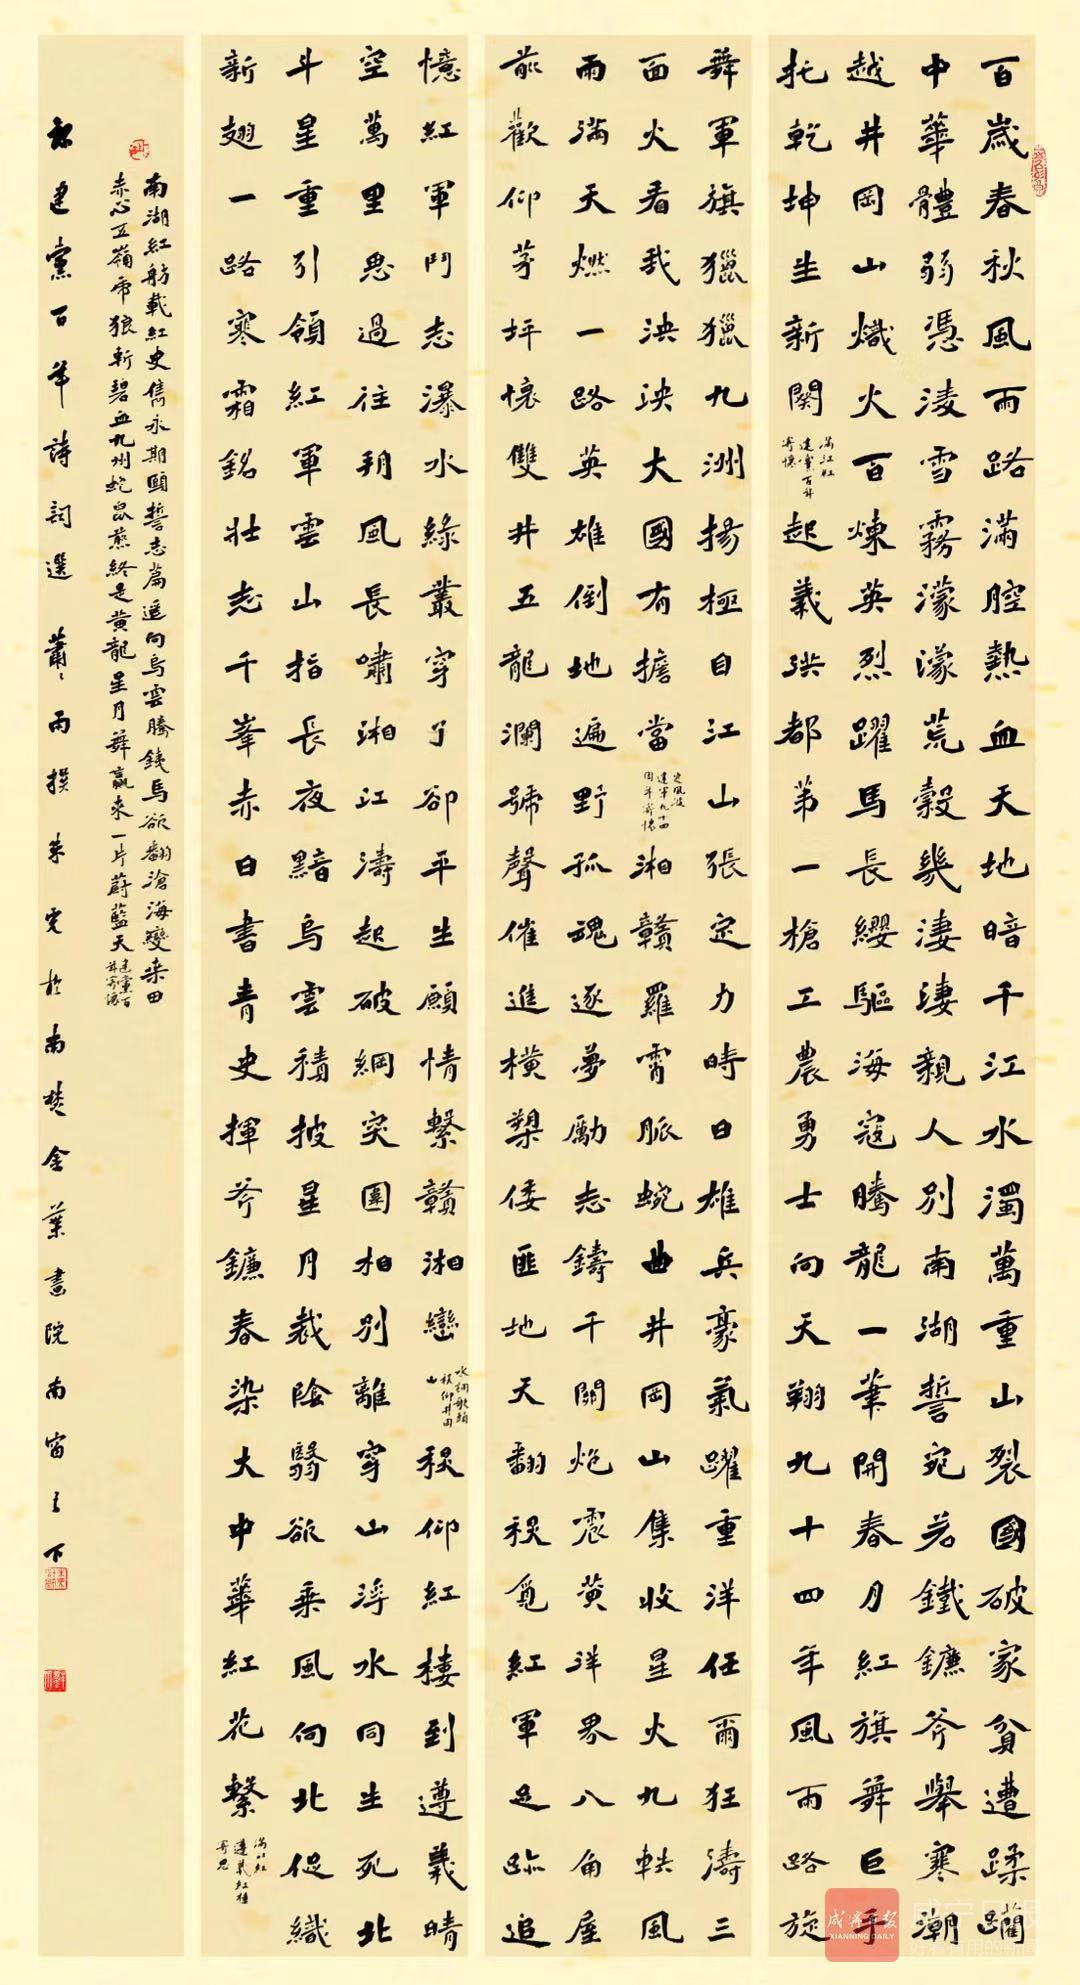 百歲春秋風雨路滿腔熱血天地暗千江水濁萬重山裂國破家貧遭蹂躪
中華體弱憑淩雪霧濛濛荒穀幾淒淒親人別南湖誓宛若鐵鐮斧舉寒潮
越井岡山熾火百煉英烈躍馬長纓驅海寇騰龍一筆開春月紅旗舞巨手
托乾坤生新闋
滿江紅
建黨百年
寄懷
起義洪都第一槍工農勇士向天翔九十四年風雨路旋
舞軍旗獵獵九洲揚極目江山張定力時日雄兵豪氣躍重洋任爾狂濤三
面火看我泱泱大國有擔當
定風波
建軍九十四
周年寄懷
湘贛羅霄脈蜿曲井岡山集收星火九軼風
雨滿天燃一路英雄倒地遍野孤魂逐夢勵志鑄千關炮震黃洋界八角屋
前歡仰茅坪懷雙井五龍瀾號聲催進橫槊倭匪地天翻祲覓紅軍足跡追
憶紅軍鬥志瀑水綠叢穿了卻平生願情繫贛湘巒
水調歌頭
岡山
祲仰紅樓到遵義晴
空萬里思過往朔風長嘯湘江濤起破網突圍相別離穿山浮水同生死北
斗星重引領紅軍雲山指長夜黯烏雲積披星月裁陰翳欲乘風向北促織
新翅一路寒霜銘壯志千峯赤日書青史揮斧鐮春染大中華紅花繫
滿江紅
遵義紅樓
寄思
南湖紅舫載紅史雋永期頤誓志篇遥向烏雲騰鐵馬欲翻滄海變桑田
赤心五嶺帝狼斬碧血九州蛇鼠煎終是黃龍呈月舞赢來一片蔚藍天
建黨百
年寄懷
建黨百年詩詞選 蕭蕭雨撰 於南楚金葉畫院南窗之下
咸宁日报
XIANNING DAILY
咸宁日报
好看有用的新闻